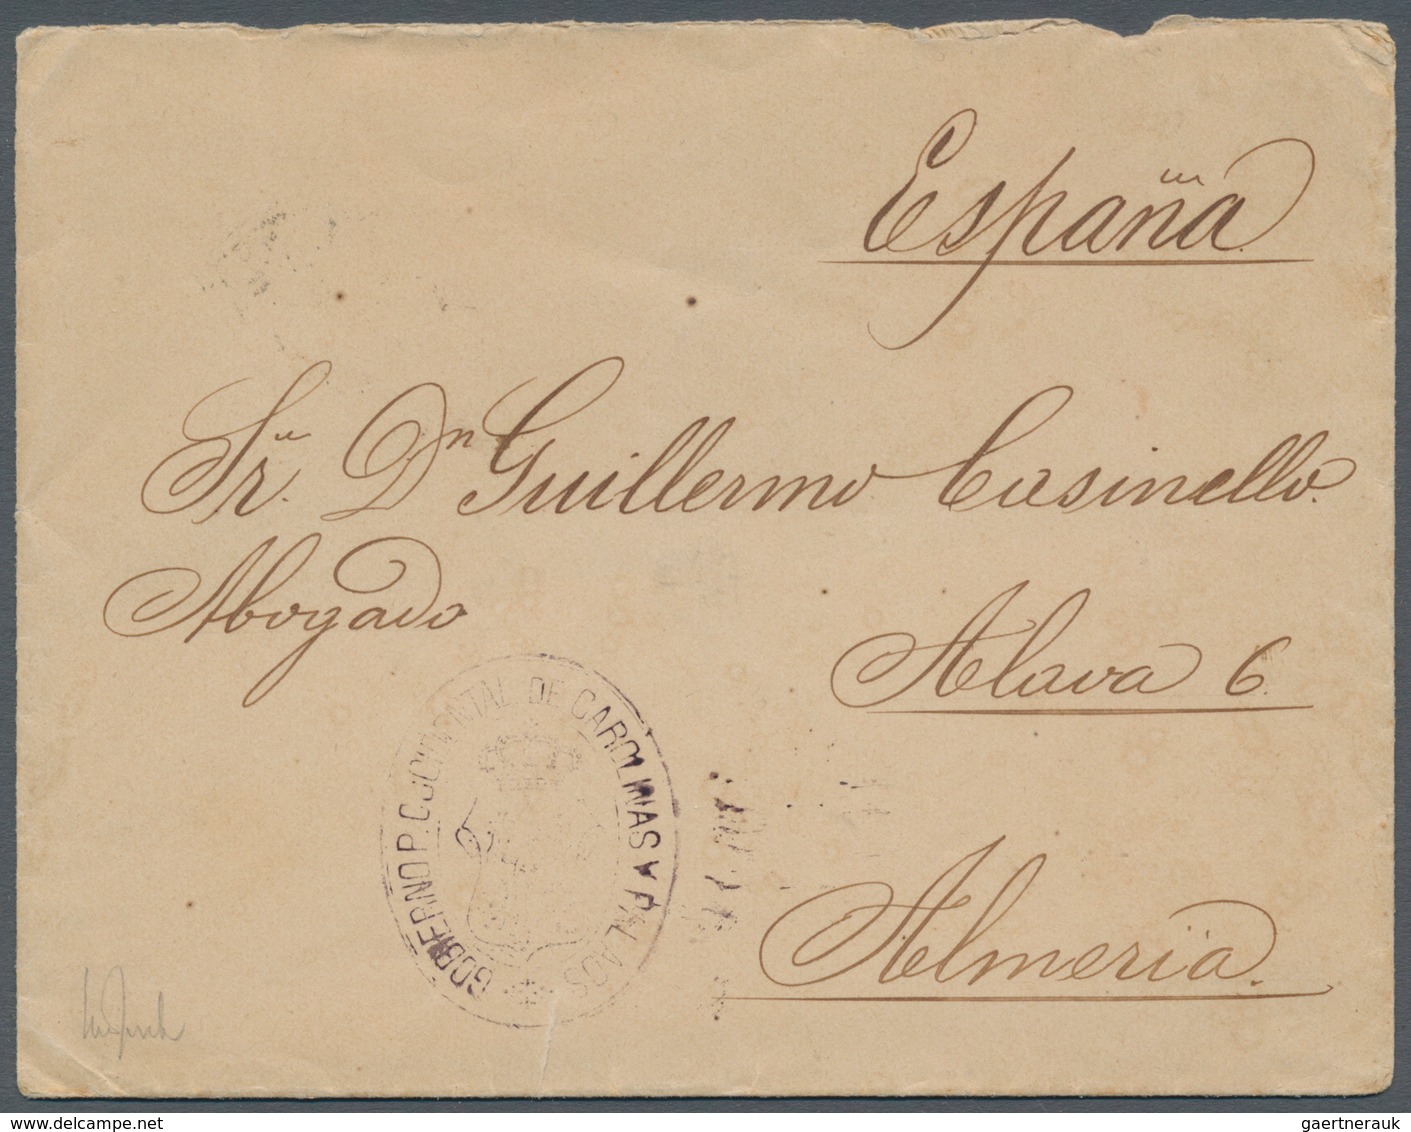 España
Sr. Dn Guillermo Casinello.
Abogado
Alava 6.
Almeria.
GOBIERNO P. O OCCIDENTAL DE CAROLINAS Y PALAOS
www.delcampe.net
gaertnerauk